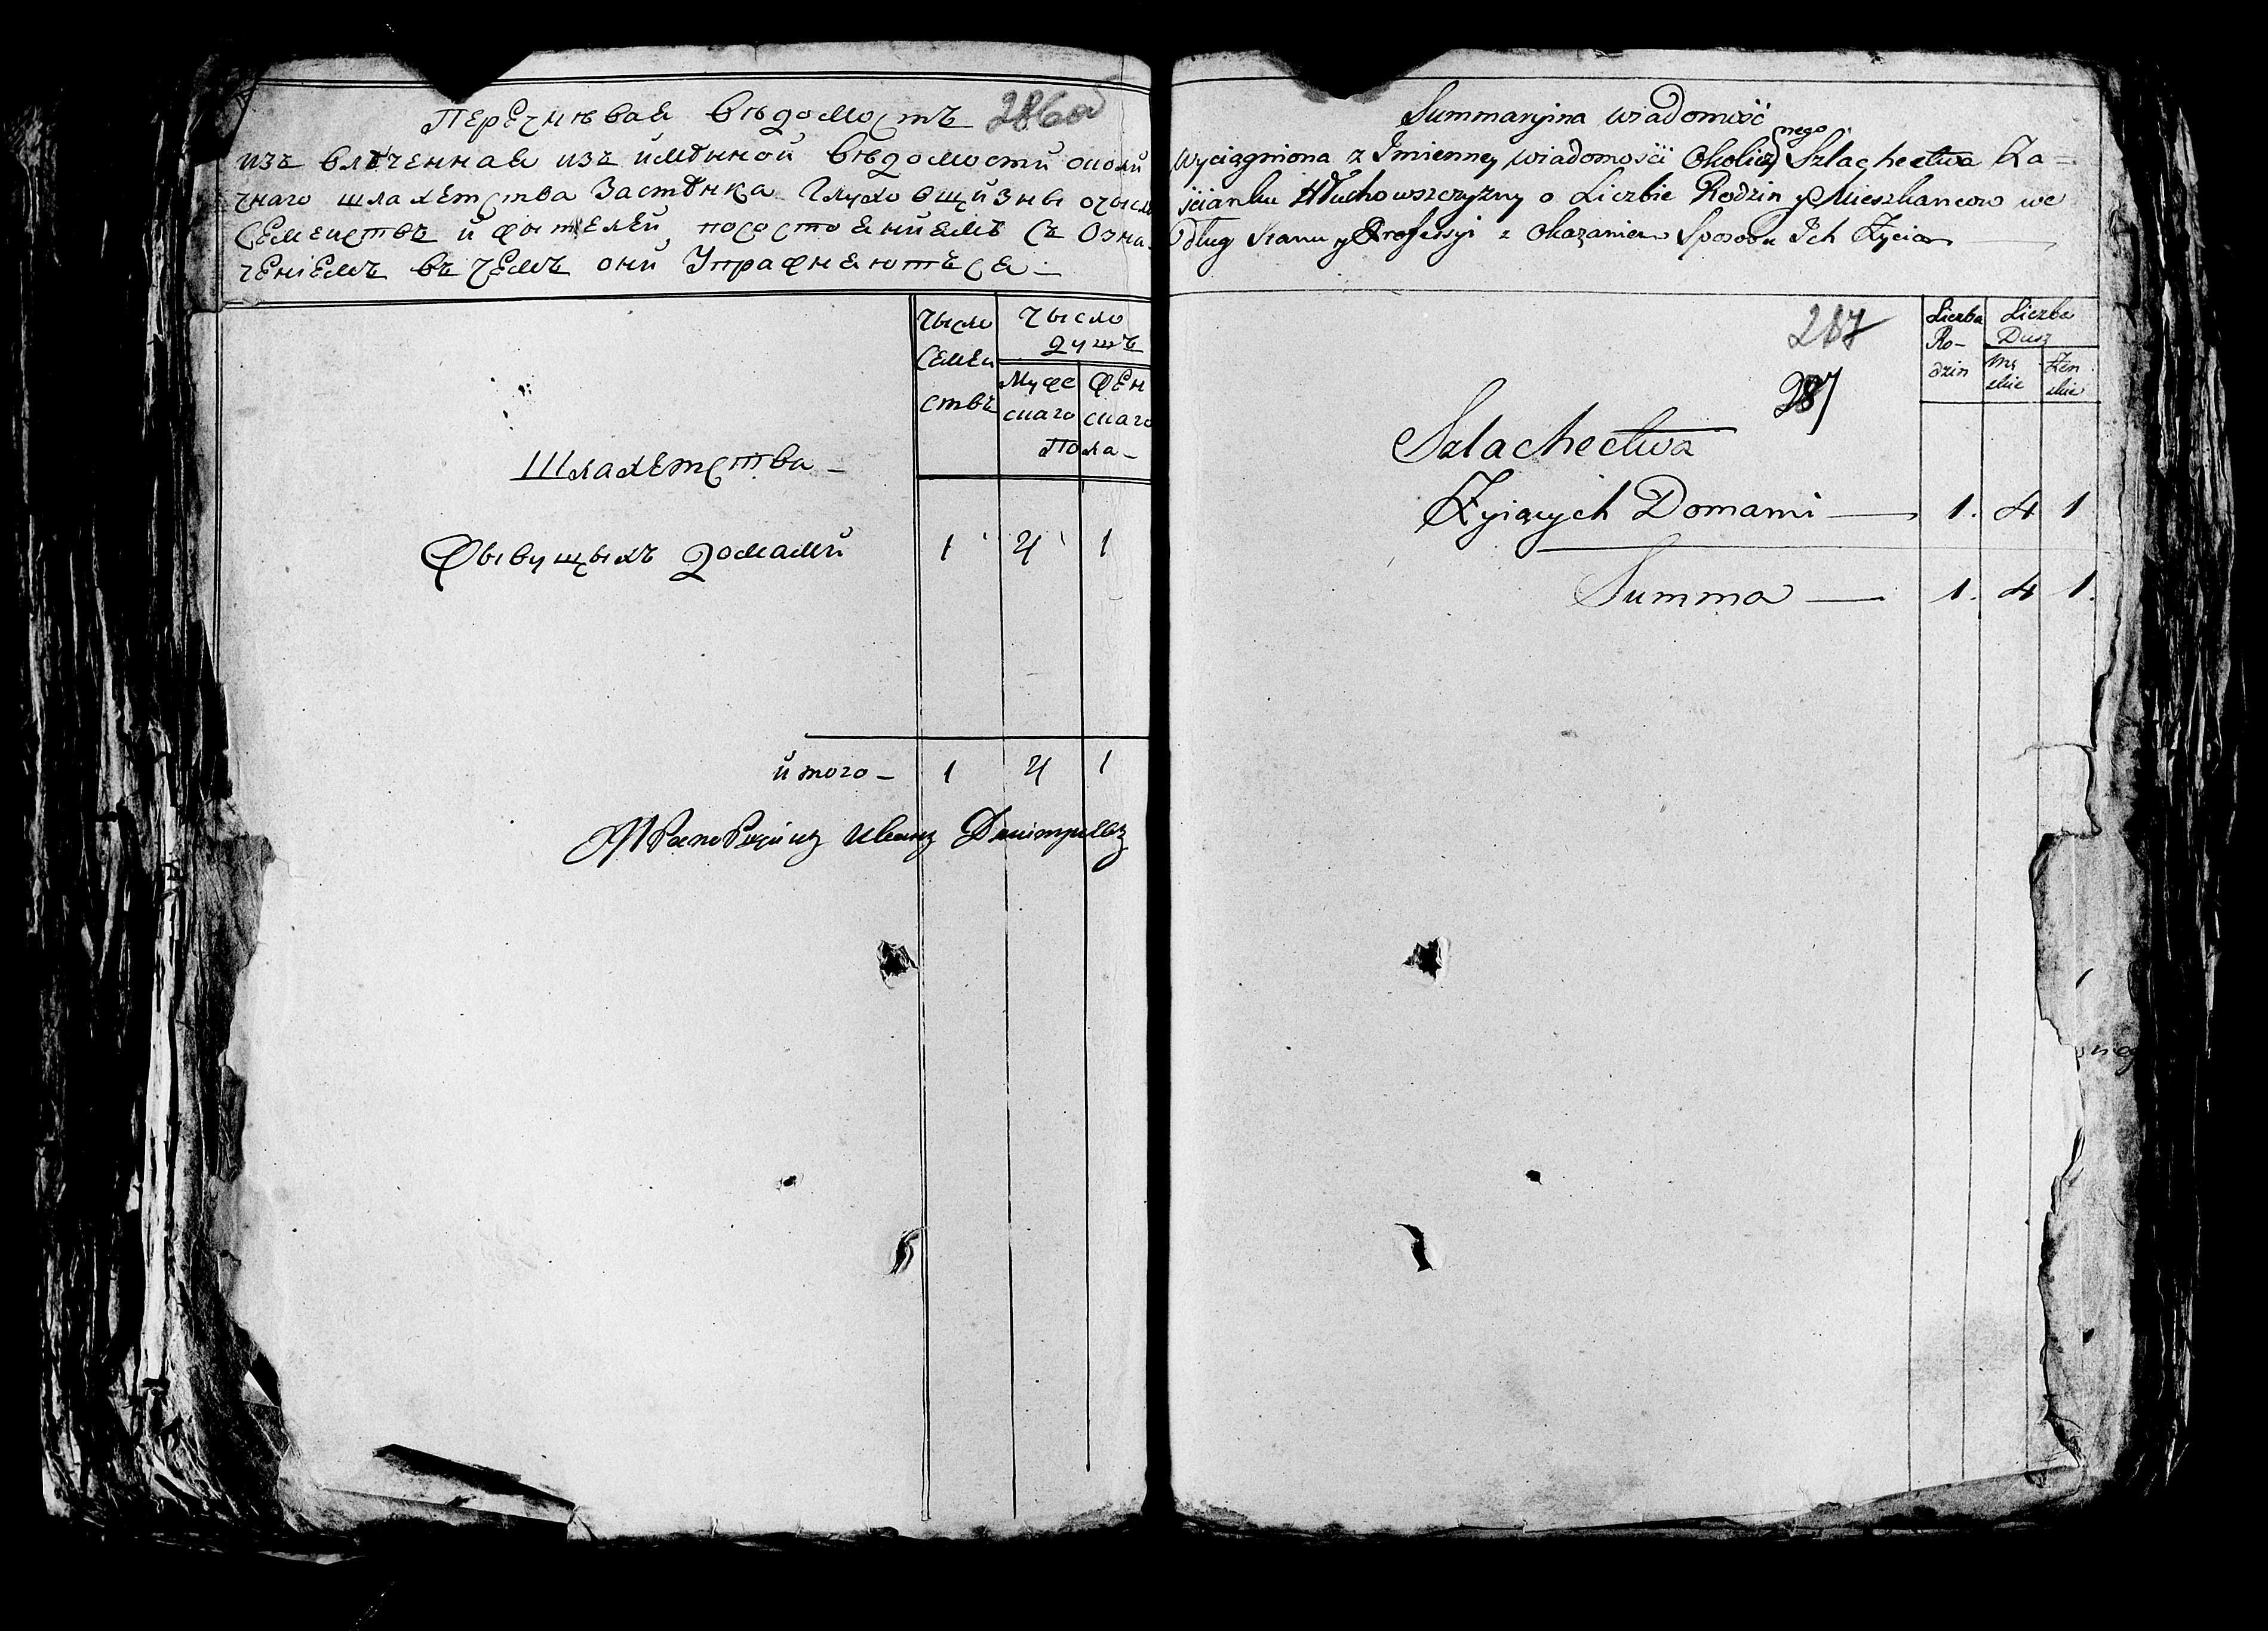 Перечнѣвая вѣдомость 286об
изъ влѣченная изъ имѣнной вѣдомости околи
чнаго шлахетства Застѣнка Глуховщизны очысле
Семеиствъ и жытелей, посостояниямъ съ Озна-
ченіемъ въ чемъ они Упражняютъся —
Чысло Семеи ствъ
Чысло душъ
Муже скаго
Жен скаго
Пола —
Шлахетства —
Жывущыхъ домами 1 4 1
итого — 1 4 1
Иванъ
Summaryina wiadomość
Wyciągniona z Imienney wiadomości Okolicznego Szlachectwa Za=
ścianku Hłuchowszczyzny o Liczbie Rodzin y Mieszkancow we
dług Stanu y Professyi z Okazaniem Sposobu Ich Życia
287
287
Liczba Ro- dzin
Liczba Dusz
Mę skie
Żen skie
Szlachectwa
Żyiących Domami — 1. 4 1
Summa — 1. 4 1.